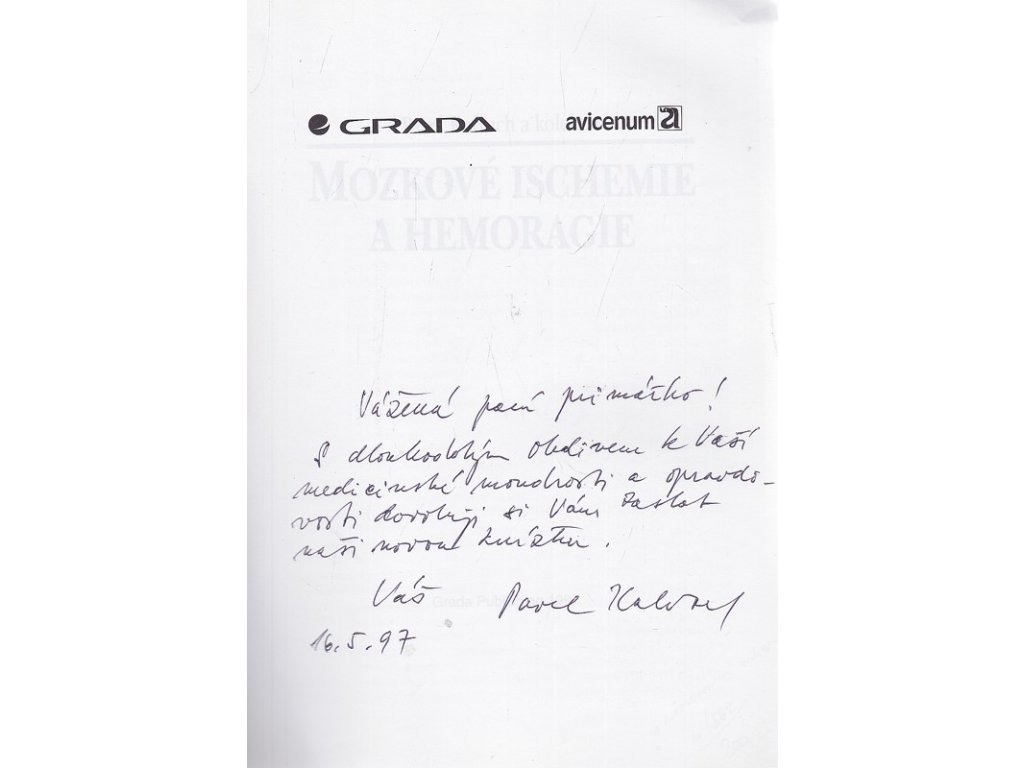 GRADA avicenum
ch a kol
MOZKOVÉ ISCHEMIE
A HEMORAGIE
Vážená paní primářko!
S dlouhodobým obdivem k Vaší
medicinské moudrosti a opravdo-
vosti dovoluji si Vám zaslat
naši novou knížku.
Váš Pavel Kalvach
Grada Publishing 1997
16.5.97